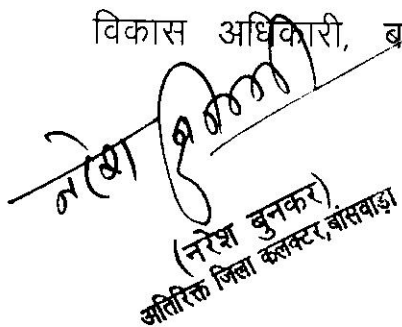 विकास अधिकारी, ब
नरेश
(नरेश बुनकर)
अतिरिक्त जिला कलक्टर, बांसवाड़ा